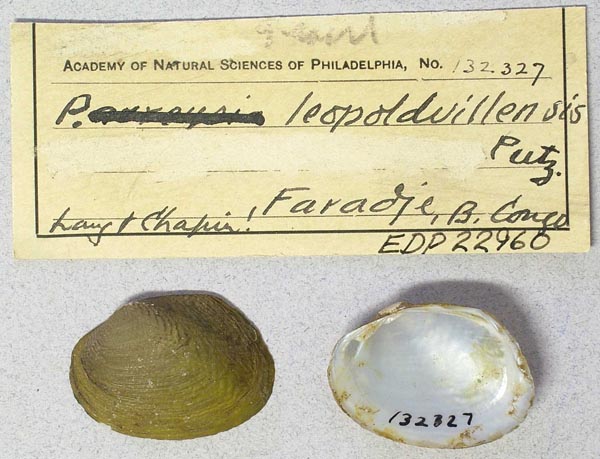 ACADEMY OF NATURAL SCIENCES OF PHILADELPHIA, NO. 132.327
P. leopoldvillensis
Putz.
Lang & Chapin! Faradje, B. Congo
EDP 22960
132327